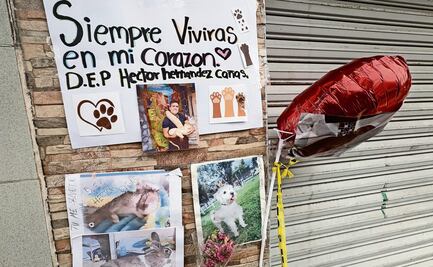 Siempre Viviras
en mi Corazon.
D.E.P Hector hernandez Cañas.